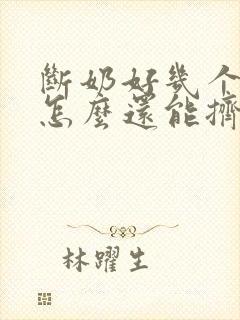 斷奶好幾个
怎麼還能擠
林躍生